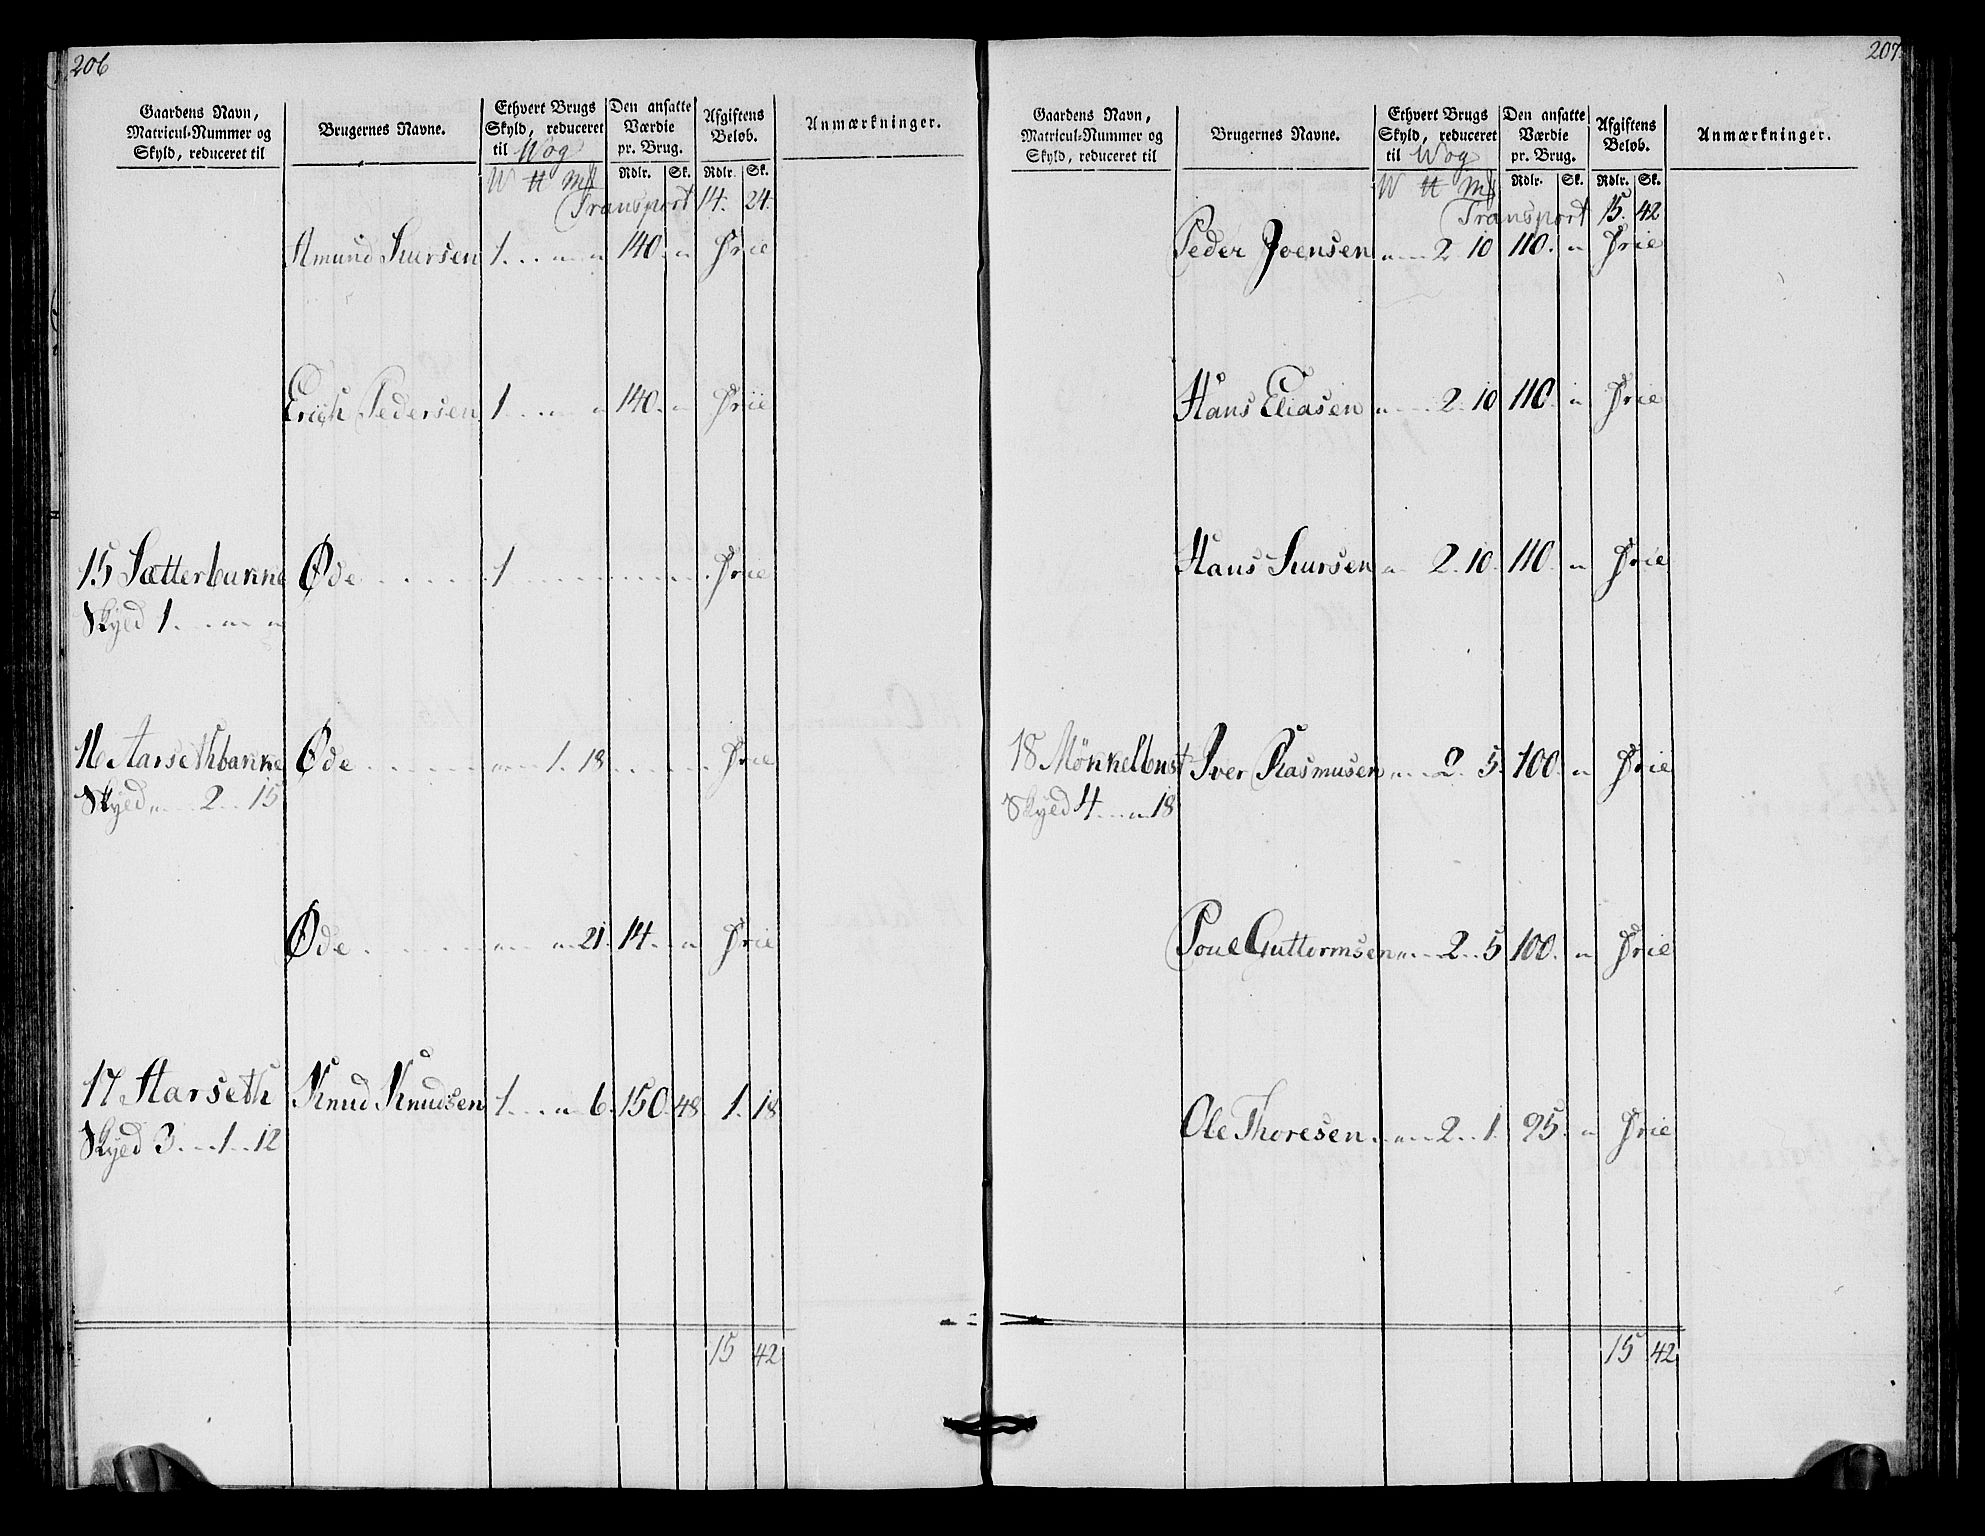 206
Gaardens Navn, Matricul-Nummer og Skyld, reduceret til
Brugernes Navne.
Ethvert Brugs Skyld, reduceret til Wog
Den ansatte Værdie pr. Brug.
Afgiftens Beløb.
Anmærkninger.
W ℔ Mk Rdlr. Sk. Rdlr. Sk.
Transport 14. 24.
Amund Siursen 1. . . „ „ 140. „ Frie
Erich Pedersen 1. . . „ „ 140. „ Friie
15 Sætterbunne Øde . . . . . 1 . . . . . . . . . Frie
Skyld 1. . . „ . . „
16 Aarsethbanke Øde . . . . . „ . . 1. 18. . . . . . Frie
Skyld „ . . 2 . . 15
Øde . . . . . „ . . „ . . 21. 14. . „ Frie
17 Aarseth Knud Knudsen 1. . . „ 6. 150. 48 1. 18
Skyld 3. . . 1. . 12
15 42
207.
Gaardens Navn, Matricul-Nummer og Skyld, reduceret til
Brugernes Navne.
Ethvert Brugs Skyld, reduceret til Wog
Den ansatte Værdie pr. Brug.
Afgiftens Beløb.
Anmærkninger.
W ℔ Mk Rdlr. Sk. Rdlr. Sk.
Transport 15. 42
Peder Joensen „ . . 2 10 110. „ Frie
Hans Eliasen „ . . 2. 10 110. „ Frie
Hans Siursen „ 2. 10. 110. „ Frie
18 Mönkelbust Iver Rasmusen „ . . 2. 5. 100. „ Frie
Skyld 4. . . „ 18
Poul Guttormsen „ . . 2. . 5 100. „ Frie
Ole Thoresen. . „ . . 2. . 1. 95. „ Frie
15 42